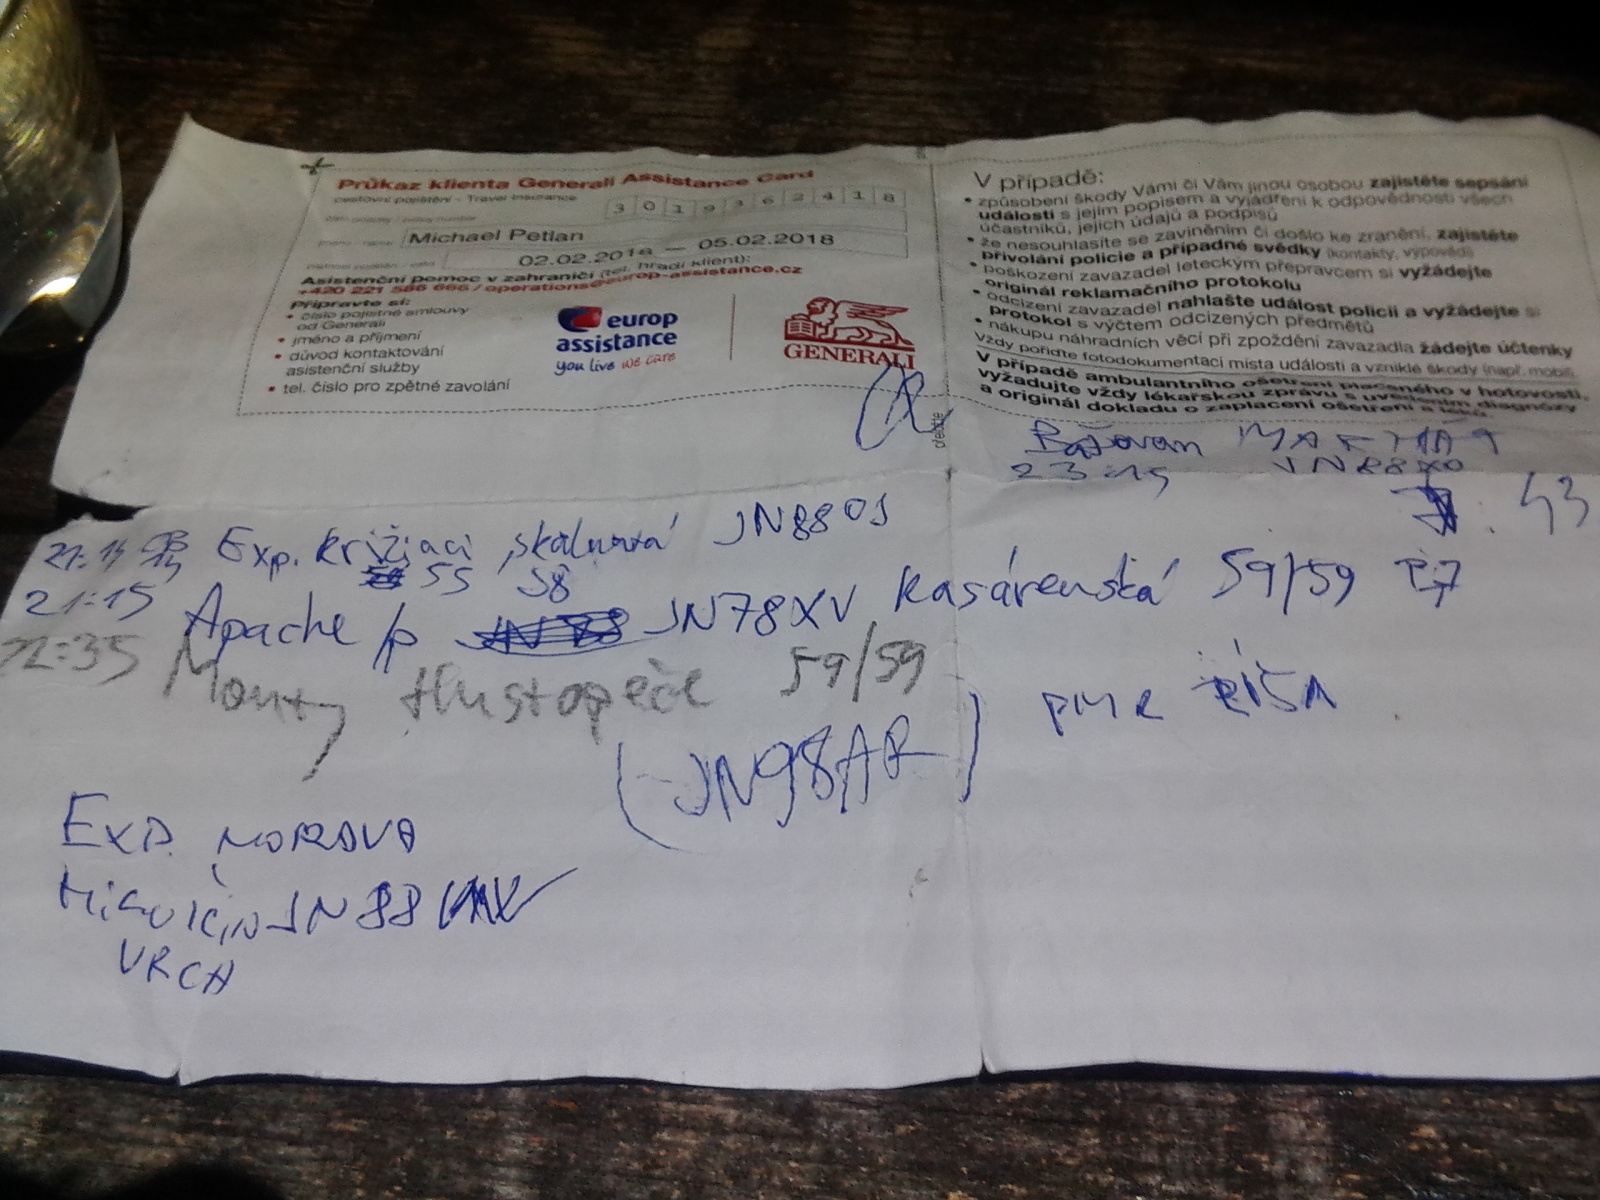 Průkaz klienta Generali Assistance Card
cestovní pojištění - Travel Insurance
3 0 1 9 3 6 2 4 1 8
Michael Petlan
02.02.2018 — 05.02.2018
Asistenční pomoc v zahraničí (tel. hradí klient):
+420 221 586 666 / operations@europ-assistance.cz
Připravte si:
• číslo pojistné smlouvy
od Generali
• jméno a příjmení
• důvod kontaktování
asistenční služby
• tel. číslo pro zpětné zavolání
europ
assistance
you live we care
GENERALI
V případě:
• způsobení škody Vámi či Vám jinou osobou zajistěte sepsání
události s jejím popisem a vyjádření k odpovědnosti všech
účastníků, jejich údajů a podpisů
• že nesouhlasíte se zaviněním či došlo ke zranění, zajistěte
přivolání policie a případné svědky (kontakty, výpovědi)
• poškození zavazadel leteckým přepravcem si vyžádejte
originál reklamačního protokolu
• odcizení zavazadel nahlašte událost policii a vyžádejte si
protokol s výčtem odcizených předmětů
• nákupu náhradních věcí při zpoždění zavazadla žádejte účtenky
Vždy pořiďte fotodokumentaci místa události a vzniklé škody (např. mobil).
V případě ambulantního ošetření placeného v hotovosti,
vyžadujte vždy lékařskou zprávu s uvedením diagnózy
a originál dokladu o zaplacení ošetření a léků.
přeložte
JN88
43
Exp. Križiaci skalnatá JN88OJ
55 58
21:15 Apache /p JN78XV Kasárenská 59/59
22:35 Monty Hustopeče 59/59
(JN98AR) PMR
EXP. MORAVA
JN88
VRCH